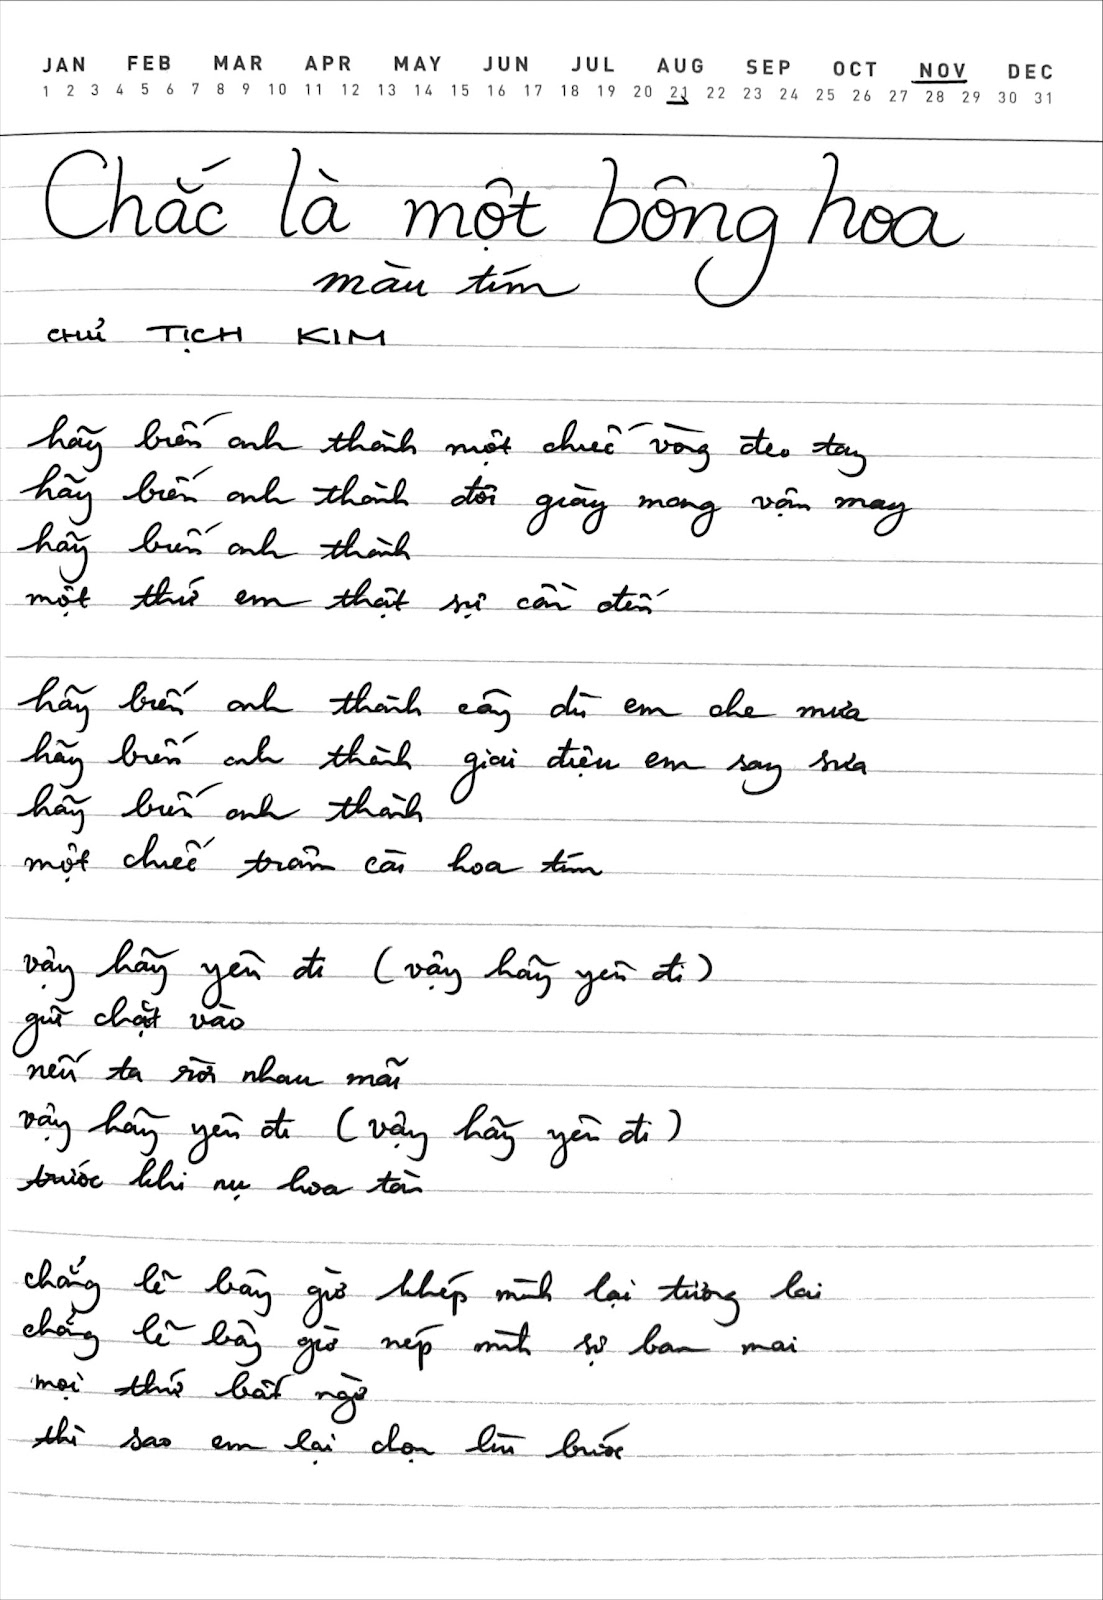 JAN FEB MAR APR MAY JUN JUL AUG SEP OCT NOV DEC
1 2 3 4 5 6 7 8 9 10 11 12 13 14 15 16 17 18 19 20 21 22 23 24 25 26 27 28 29 30 31
Chắc là một bông hoa
màu tím
CHỦ TỊCH KIM
hãy biến anh thành một chiếc vòng đeo tay
hãy biến anh thành đôi giày mang vận may
hãy biến anh thành
một thứ em thật sự cần đến
hãy biến anh thành cây dù em che mưa
hãy biến anh thành giai điệu em say sưa
hãy biến anh thành
một chiếc trâm cài hoa tím
vậy hãy yên đi (vậy hãy yên đi)
giữ chặt vào
nếu ta rời nhau mãi
vậy hãy yên đi (vậy hãy yên đi)
trước khi nụ hoa tàn
chẳng lẽ bây giờ khép mình lại tương lai
chẳng lẽ bây giờ nép mình sợ ban mai
mọi thứ bất ngờ
thì sao em lại chọn lùi bước